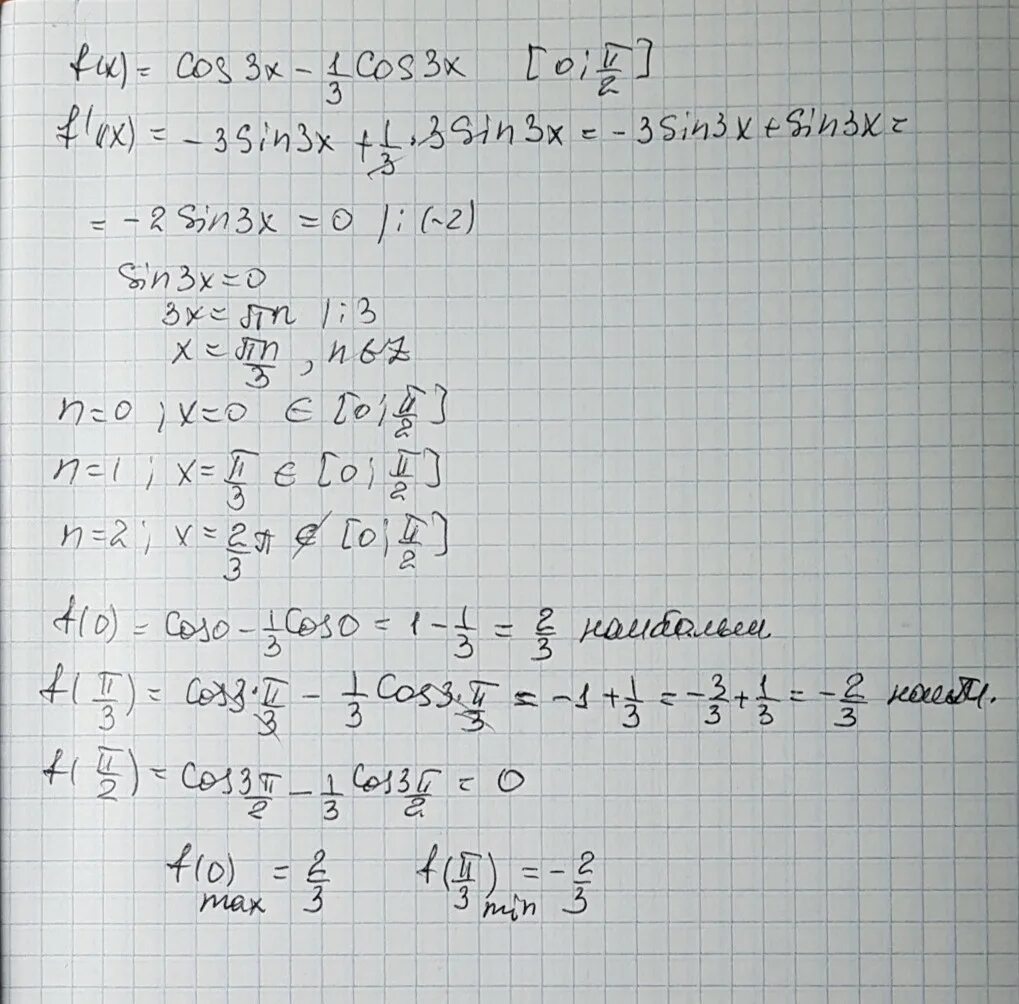 f(x) = cos 3x - 1/3 cos 3x [0; π/2]
f'(x) = -3 sin 3x + 1/3 · 3 sin 3x = -3 sin 3x + sin 3x =
= -2 sin 3x = 0 /: (-2)
sin 3x = 0
3x = πn /: 3
x = πn/3, n ∈ Z
n = 0; x = 0 ∈ [0; π/2]
n = 1; x = π/3 ∈ [0; π/2]
n = 2; x = 2/3 π ∉ [0; π/2]
f(0) = cos 0 - 1/3 cos 0 = 1 - 1/3 = 2/3
f(π/3) = cos 3 · π/3 - 1/3 cos 3 · π/3 = -1 + 1/3 = -3/3 + 1/3 = -2/3
f(π/2) = cos 3π/2 - 1/3 cos 3π/2 = 0
f(0) max = 2/3 f(π/3) min = -2/3